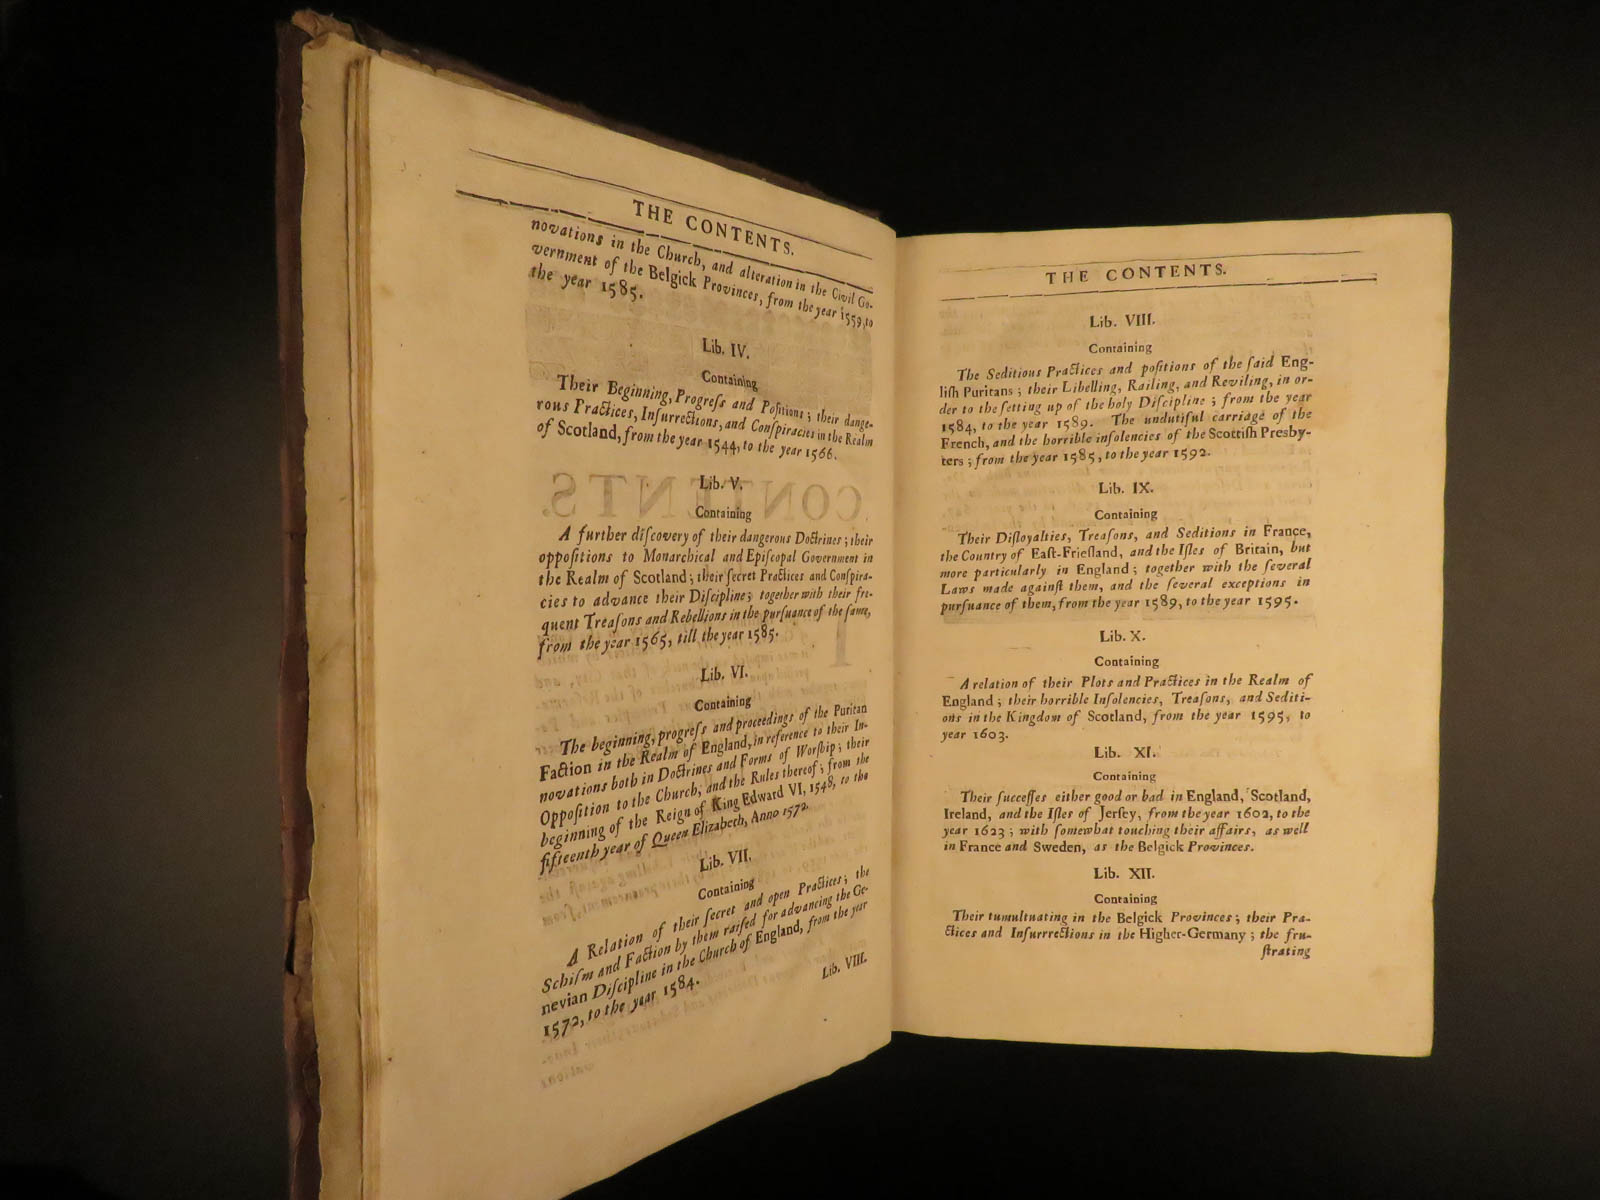 THE CONTENTS.
novations in the Church, and alteration in the Civil Go-
vernment of the Belgick Provinces, from the year 1559, to
the year 1585.
Lib. IV.
Containing
Their Beginning, Progreſs and Poſitions; their dange-
rous Practices, Inſurrections, and Conſpiracies in the Realm
of Scotland, from the year 1544, to the year 1566.
Lib. V.
Containing
A further diſcovery of their dangerous Doctrines; their
oppoſitions to Monarchical and Epiſcopal Government in
the Realm of Scotland; their ſecret Practices and Conſpira-
cies to advance their Diſcipline; together with their fre-
quent Treaſons and Rebellions in the purſuance of the ſame,
from the year 1565, till the year 1585.
Lib. VI.
Containing
The beginning, progreſs and proceedings of the Puritan
Faction in the Realm of England, in reference to their In-
novations both in Doctrines and Forms of Worſhip; their
Oppoſition to the Church, and the Rules thereof; from the
beginning of the Reign of King Edward VI, 1548, to the
fifteenth year of Queen Elizabeth, Anno 1572.
Lib. VII.
Containing
A Relation of their ſecret and open Practices; the
Schiſm and Faction by them raiſed for advancing the Ge-
nevian Diſcipline in the Church of England, from the year
1572, to the year 1584.
Lib. VIII.
THE CONTENTS.
Lib. VIII.
Containing
The Seditious Practices and poſitions of the ſaid Eng-
liſh Puritans; their Libelling, Railing, and Reviling, in or-
der to the ſetting up of the holy Diſcipline; from the year
1584, to the year 1589. The undutiful carriage of the
French, and the horrible inſolencies of the Scottiſh Presby-
ters; from the year 1585, to the year 1592.
Lib. IX.
Containing
Their Diſloyalties, Treaſons, and Seditions in France,
the Country of Eaſt-Frieſland, and the Iſles of Britain, but
more particularly in England; together with the ſeveral
Laws made againſt them, and the ſeveral exceptions in
purſuance of them, from the year 1589, to the year 1595.
Lib. X.
Containing
A relation of their Plots and Practices in the Realm of
England; their horrible Inſolencies, Treaſons, and Sediti-
ons in the Kingdom of Scotland, from the year 1595, to
year 1603.
Lib. XI.
Containing
Their ſucceſſes either good or bad in England, Scotland,
Ireland, and the Iſles of Jerſey, from the year 1602, to the
year 1623; with ſomewhat touching their affairs, as well
in France and Sweden, as the Belgick Provinces.
Lib. XII.
Containing
Their tumultuating in the Belgick Provinces; their Pra-
ctices and Inſurrections in the Higher-Germany; the fru-
ſtrating